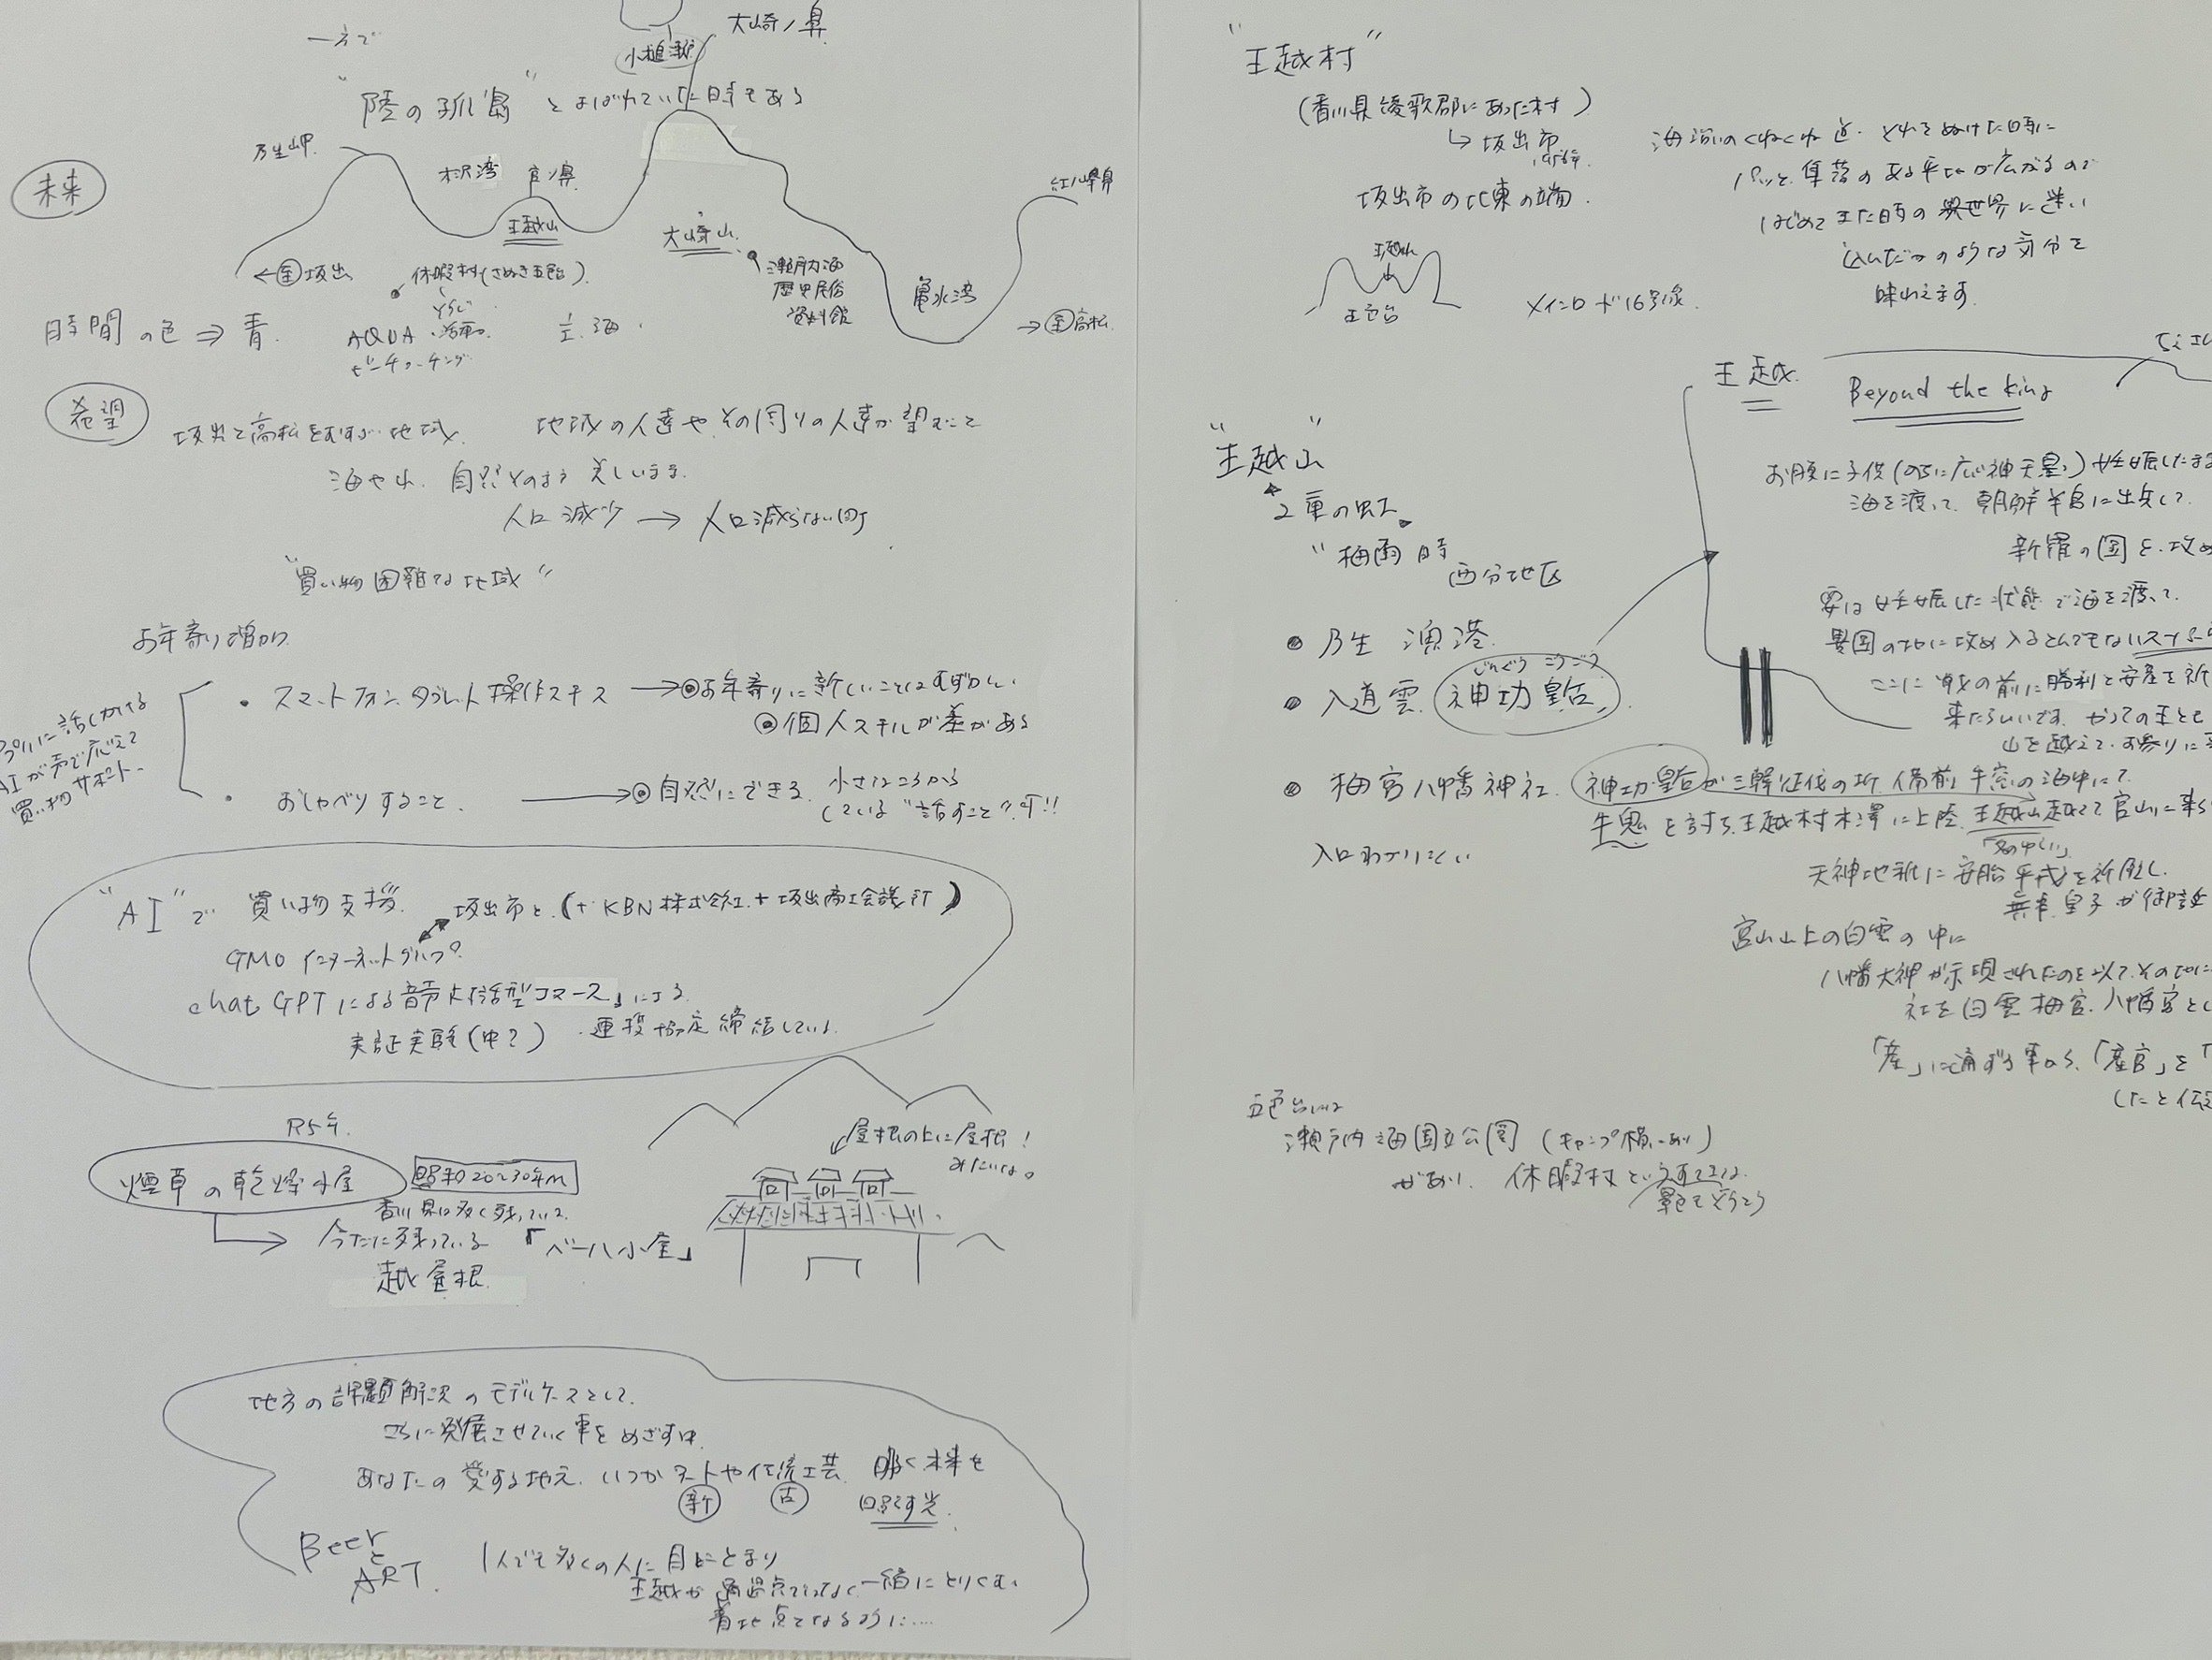 一方で
小槌島
大崎ノ鼻
"陸の孤島" とよばれていた時もある
乃生岬
木沢湾
宮ノ鼻
王越山
大崎山
紅ノ峰鼻
未来
←全坂出
休暇村(さぬき五色台)
瀬戸内海
歴史民俗
資料館
亀水湾
→全高松
時間の色⇒青
AQUA
ビーチコーチング
海
希望
坂出と高松をむすぶ地域
地域の人達や、その周りの人達が望むこと
海や山、自然そのまま 美しいまま
人口減少 → 人口減らない町
"買い物困難な地域"
お年寄り増加
に話しかける
AIが声で応えて
買い物サポート
・スマートフォン、タブレット操作スキル → ◎お年寄りに新しいことはむずかしい
◎個人スキルが差がある
・おしゃべりすること → ◎自然にできる 小さなころから
している "話すこと"、!!
"AI"で 買い物支援 坂出市と (+ KBN株式会社 + 坂出商工会議所)
GMOインターネットグループ
chat GPTによる音声対話型コマース」による
実証実験(中?) ・連携協定締結している
R5年
煙草の乾燥小屋
昭和20~30年代
香川県に多く残っている
今だに残っている 「ベーハ小屋」
越屋根
屋根の上に屋根!
みたいな。
地方の課題解決のモデルケースとして
さらに発展させていく事をめざす中
あなたの愛する地元、いつかアートや伝統工芸 明るく未来を
新
古
照らす光
BEEr
と
ART.
1人でも多くの人に目にとまり
王越が通過点ではなく一緒にとりくむ
着地点となるように……
"王越村"
(香川県綾歌郡にあった村)
↳ 坂出市
1956年
坂出市の北東の端
海沿いのくねくね道、それをぬけた時に
パッと、集落のある平地が広がるので
はじめて来た時の異世界に迷い
込んだかのような気分を
味わえます
王越山
五色台
メインロード16号線
王越
Beyond the king
"王越山"
2重の虹
"梅雨時
西分地区
お腹に子供(のちに広い神天皇)妊娠したまま
海を渡って 朝鮮半島に出兵して
新羅の国を攻め
要は妊娠した状態で海を渡って
異国の地に攻め入るとんでもない
ここに戦の前に勝利と安産を祈
来たらしいです かつての王とも
山を越えて お参りに
・乃生 漁港
じんぐう こうごう
・入道雲 神功皇后
・梅宮八幡神社 神功皇后が三韓征伐の折、備前 牛窓の海中にて
牛鬼を討ち、王越村木澤に上陸、王越山越えて宮山に来ら
入口わかりにくい
天神地祇に安胎平戎を祈願し
皇子が御誕
宮山山上の白雲の中に
八幡大神が示現されたのを以て、その地に
社を白雲梅宮八幡宮とし
「産」に通ずる事から、「産宮」を「
したと伝
五色台には
瀬戸内海国立公園(キャンプ場あり)
があり、休暇村